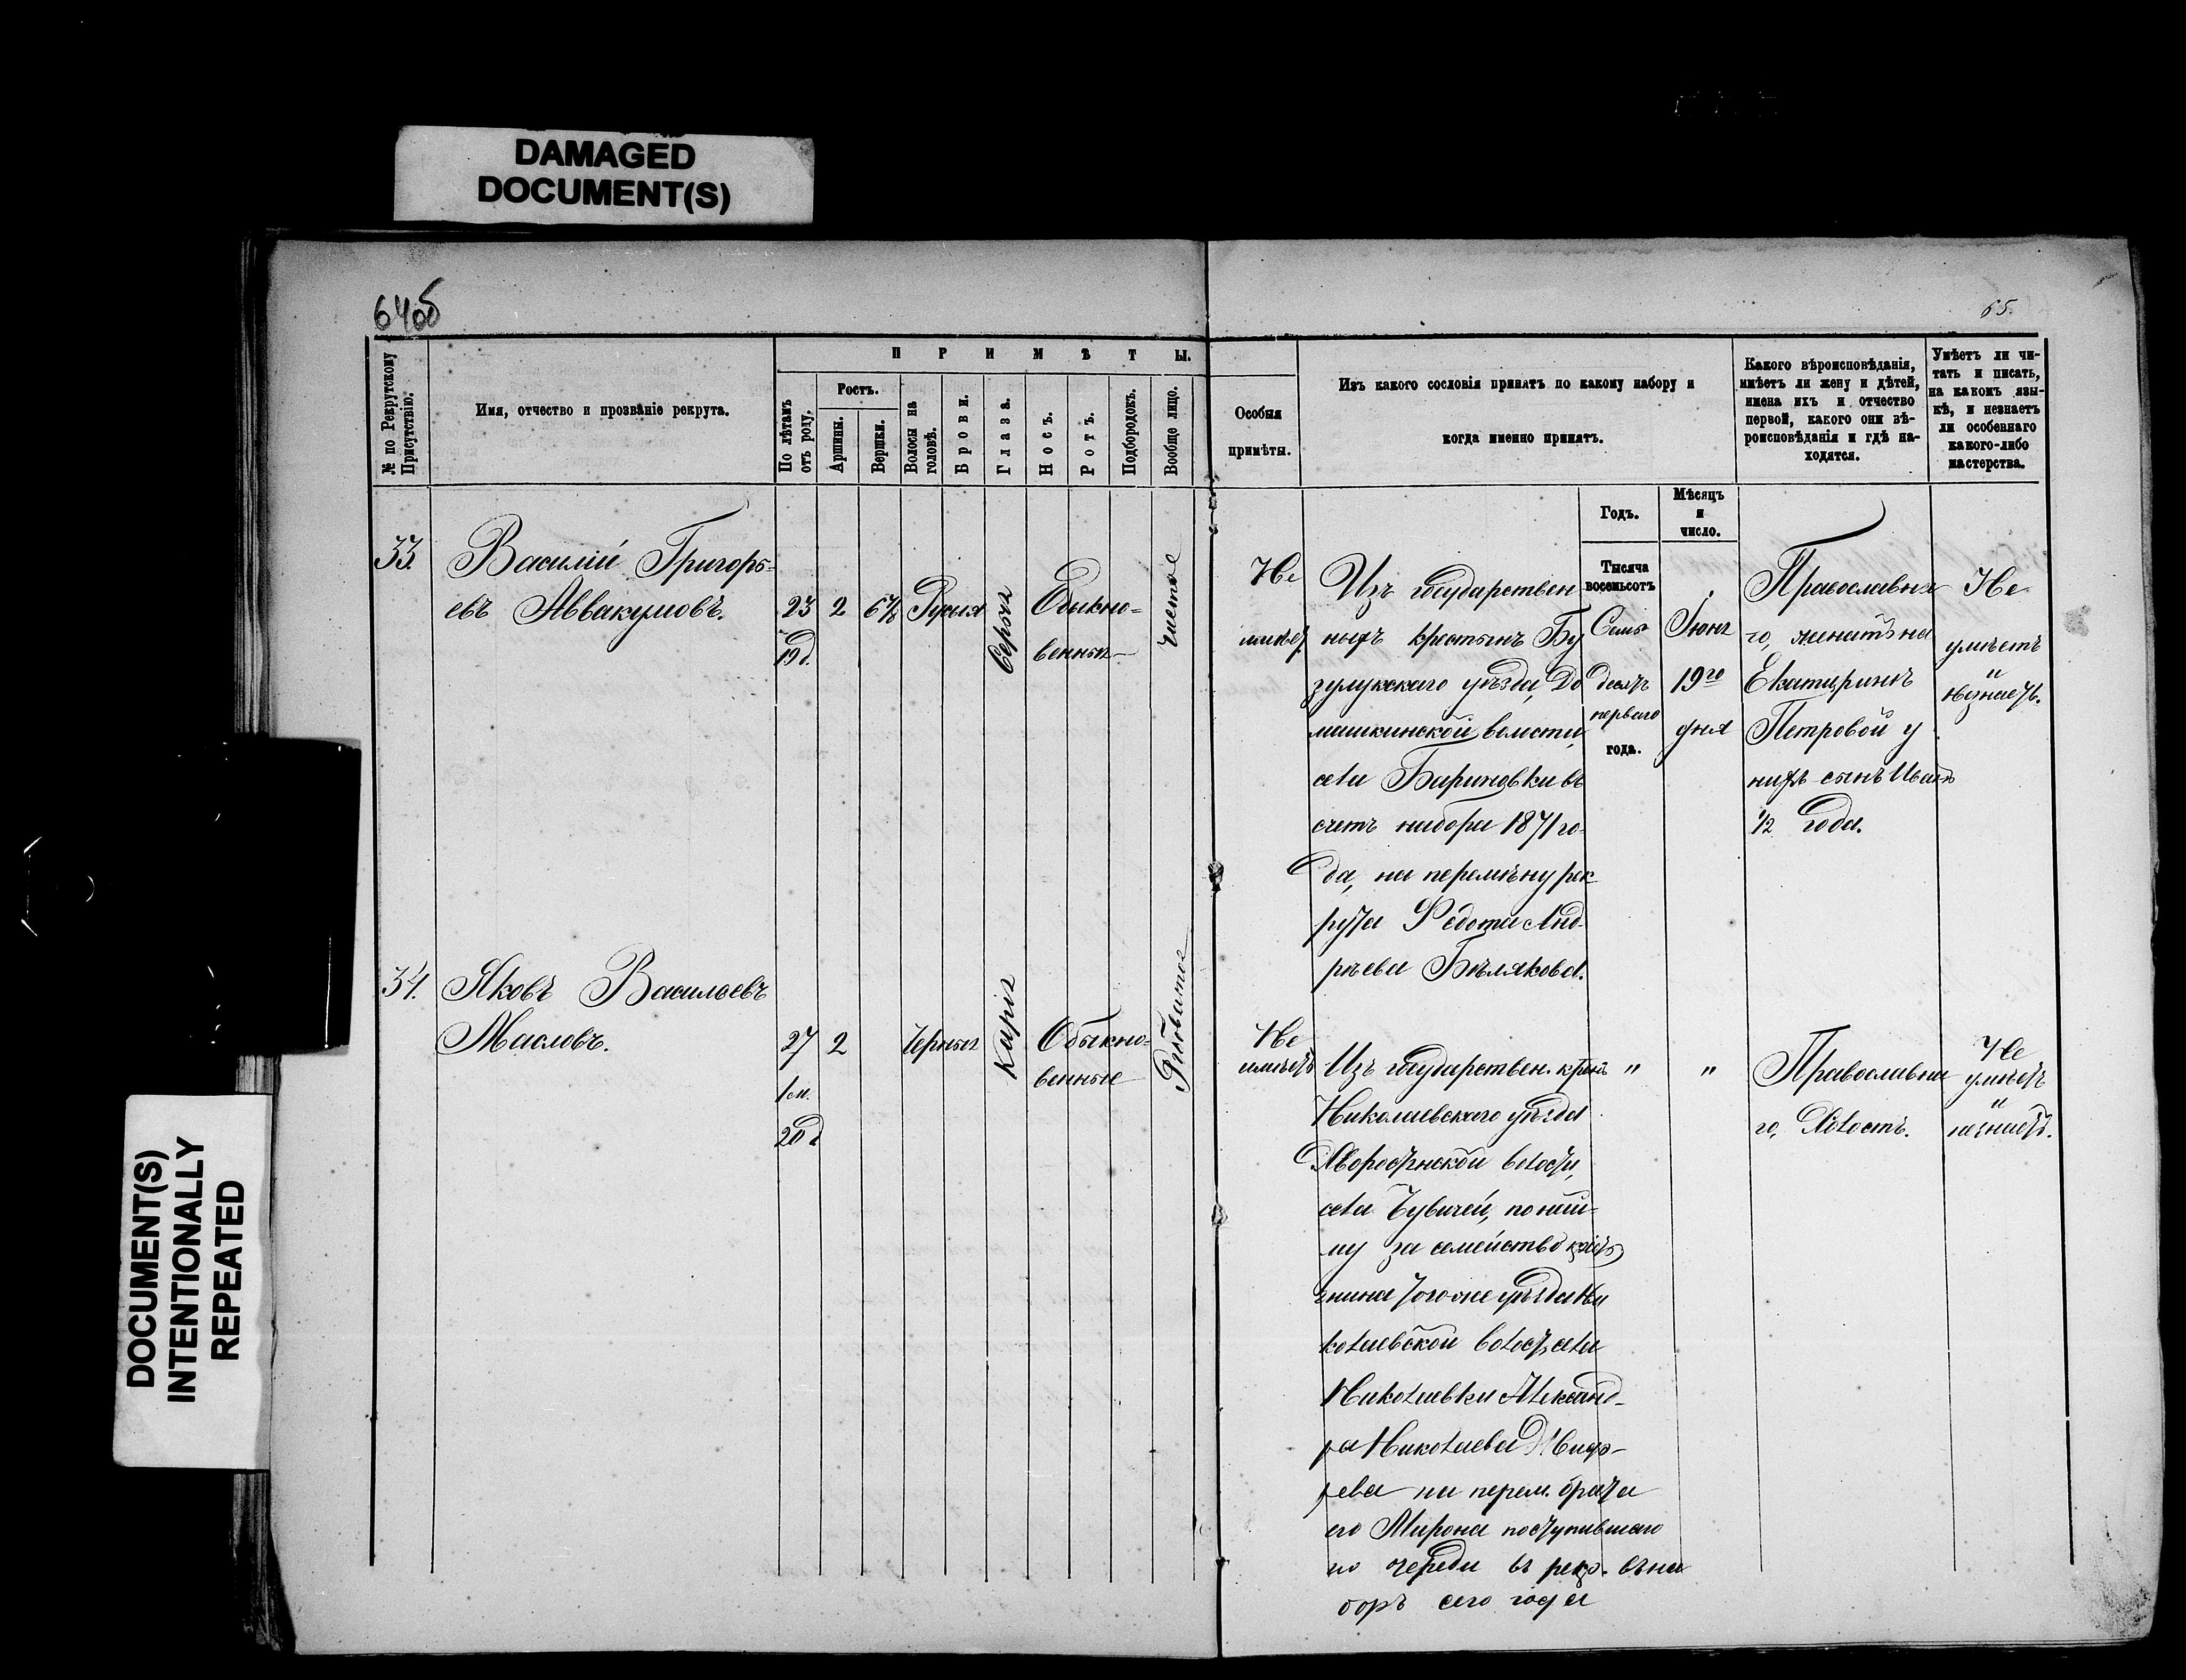 DAMAGED
DOCUMENT(S)
64об
65.
№ по Рекрутскому
Присутствію.
Имя, отчество и прозваніе рекрута.
П Р И М Ѣ Т Ы.
По лѣтамъ
отъ роду.
Ростъ.
Аршины.
Вершки.
Волосы на
головѣ.
Брови.
Глаза.
Носъ.
Ротъ.
Подбородокъ.
Вообще лицо.
Особыя
примѣты.
Изъ какого сословія принятъ по какому набору и
когда именно принятъ.
Какого вѣроисповѣданія,
имѣетъ ли жену и дѣтей,
имена ихъ и отчество
первой, какого они вѣ-
роисповѣданія и гдѣ на-
ходятся.
Умѣетъ ли чи-
тать и писать,
на какомъ язы-
кѣ, и незнаетъ
ли особеннаго
какого-либо
мастерства.
Годъ.
Мѣсяцъ
и
число.
33.
Василій Григорь-
евъ Аввакумовъ.
23
19 д.
2
6 4/8
Русыя
Серыя
Обыкно-
венныя
чистое
Не
имѣет.
Изъ государствен
ныхъ крестьянъ Бу
зулукскаго уѣзда, До
машкинской волости,
села Бариновки въ
счетъ набора 1871 го-
да, на перемѣну рек
рута Федота Анд-
рѣева Бѣлякова.
Тысяча
восемьсотъ
Семь
десятъ
перваго
года.
Іюня
19го
дня
Православна
го, женатъ на
Екатиринѣ
Петровой у
нихъ сынъ Иванъ
1/2 года.
Не
умѣетъ
и
незнаетъ.
34.
Яковъ Васильевъ
Масловъ.
27
1 м.
20 д
2
Черныя
Карія
Обыкно-
венные
Рябоватое
Не
имѣетъ
Изъ государствен. крест
Николаевскаго уѣзда
волости,
села Чувичей, по най-
му за семейство крестья
нина того же уѣзда Ни
колаевской волост. села
Николаевки Александ-
ра Николаева
рева на перем. брата
его Мирона поступившаго
по череди въ рекр. въ на
боръ сего года
"
"
Православна
го, Холостъ.
Не
умѣетъ
и
незнаетъ.
DOCUMENT(S)
INTENTIONALLY
REPEATED